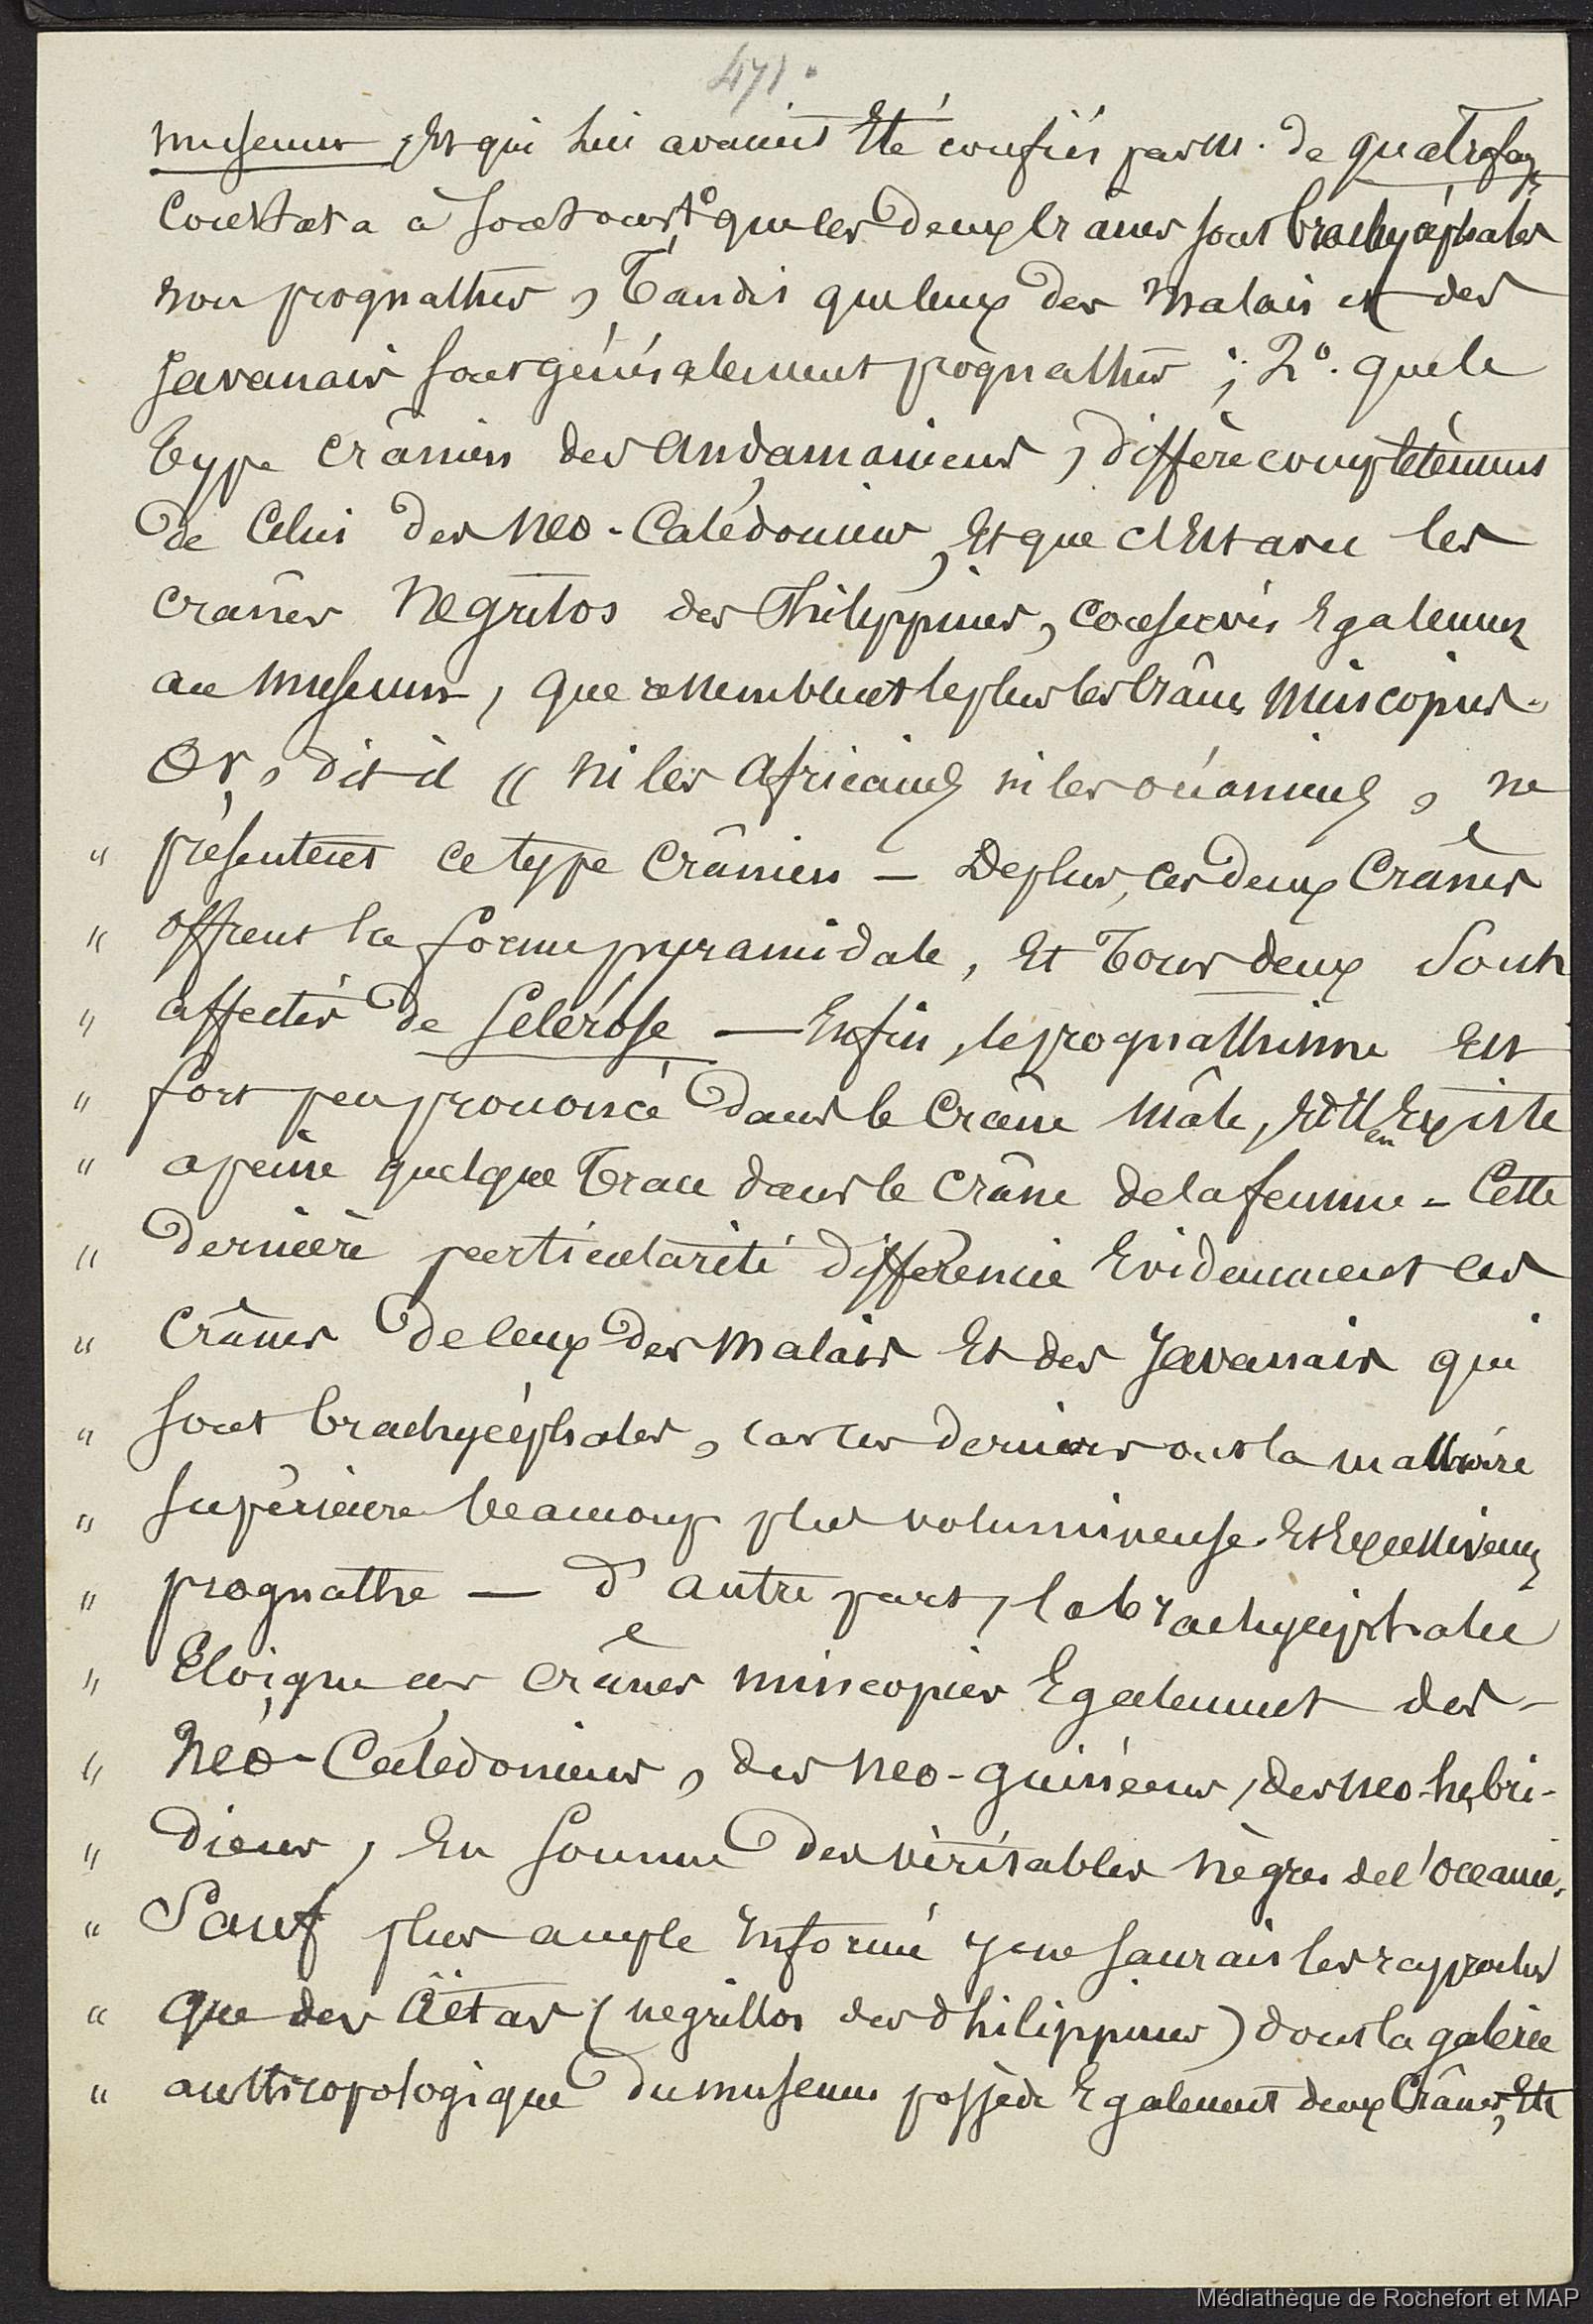 471.
museum, et qui lui avaient Eté confiés par M. de quatrefages
Constata à son tour 1° que les deux crânes sont brachycéphales
non prognathes, Tandis que ceux des malais et des
Javanais sont généralement prognathes ; 2°. que le
Type crânien des Andamaniens, diffère complètement
de Celui des Neo-Calédoniens, Et que c'Est avec les
crânes Negritos des Philippines, conservés Egalement
au museum, que ressemblent le plus les crânes mincopies.
Or, dit-il « ni les africains ni les océaniens, ne
" présentent ce type crânien — De plus, ces deux Crânes
" offrent la forme pyramidale, Et Tous deux sont
" affectés de Sclérose — Enfin, le prognathisme Est
" fort peu prononcé dans le Crâne mâle, Et Il en Existe
" a peine quelque Trace dans le crâne de la femme – Cette
" dernière particularité différencie Evidemment ces
" Crânes de ceux des malais Et des Javanais qui
" sont brachycéphales, car ces derniers ont la machoire
" supérieure beaucoup plus volumineuse Et Excessivemt
" prognathe — d'autre part, la brachycéphalie
" Eloigne ces crânes mincopies Egalement des
" Néo-Calédoniens, des neo-guinéens, des neo-hebri-
" diens, En somme des véritables nègres de l'oceanie.
" Sauf plus ample Informé je ne saurais les rapprocher
" que des Aëtas (negrillos des Philippines) dont la galerie
" anthropologique du museum possède Egalement deux Crânes, Etc
Médiathèque de Rochefort et MAP